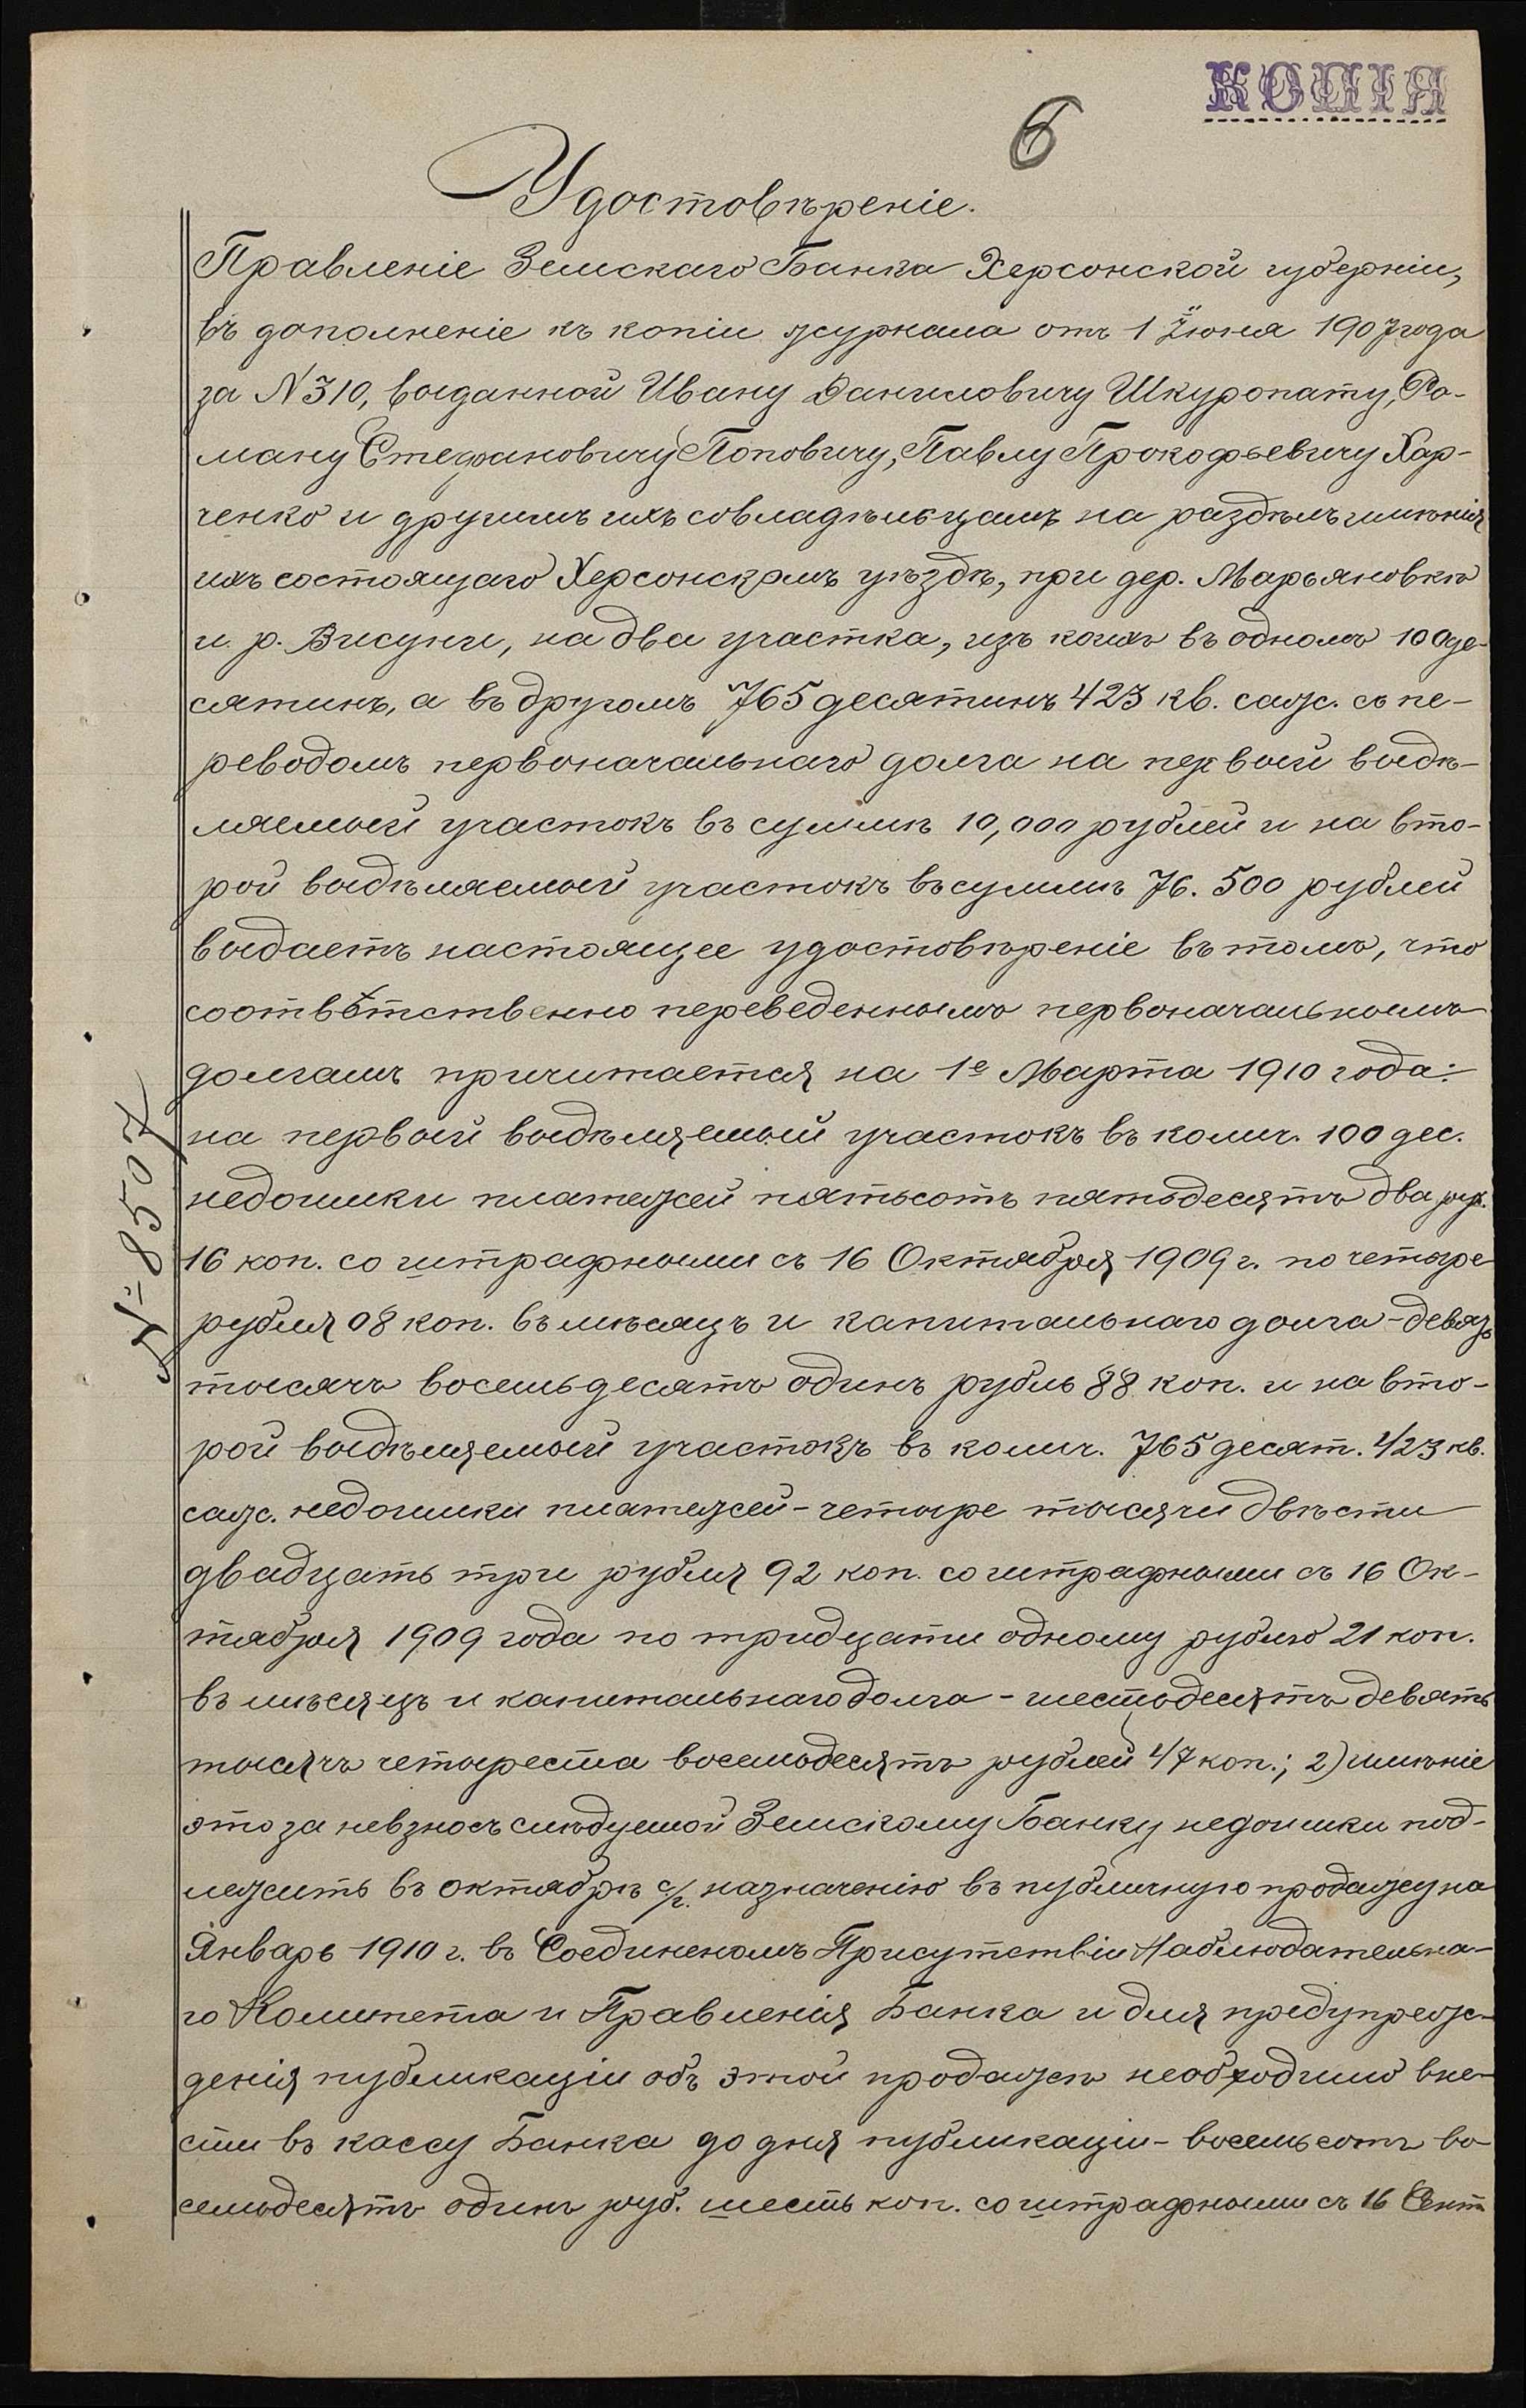 КОПІЯ
6
Удостовѣреніе.
Правленіе Земскаго Банка Херсонской губерніи,
въ дополненіе къ копіи журнала отъ 1 Іюня 1907 года
за N 310, выданной Ивану Даниловичу Шкуропату, Ро-
ману Стефановичу Поповичу, Павлу Прокофьевичу Хар-
ченко и другимъ ихъ совладѣльцамъ на раздѣлъ имѣнія
ихъ состоящаго Херсонскомъ уѣздѣ, при дер. Марьяновкѣ
и р. Висуни, на два участка, изъ коихъ въ одномъ 100 де-
сятинъ, а въ другомъ 765 десятинъ 423 кв. саж. съ пе-
реводомъ первоначальнаго долга на первый выдѣ-
ляемый участокъ въ суммѣ 10,000 рублей и на вто-
рой выдѣляемый участокъ въ суммѣ 76.500 рублей
выдаетъ настоящее удостовѣреніе въ томъ, что
соотвѣтственно переведеннымъ первоначальнымъ
долгамъ причитается на 1е Марта 1910 года:
на первый выдѣляемый участокъ въ колич. 100 дес.
недоимки платежей пятьсотъ пятьдесятъ два руб.
16 коп. со штрафными съ 16 Октября 1909 г. по четыре
рубля 08 коп. въ мѣсяцъ и капитальнаго долга - девять
тысячъ восемьдесятъ одинъ рубль 88 коп. и на вто-
рой выдѣляемый участокъ въ колич. 765 десят. 423 кв.
саж. недоимки платежей - четыре тысячи двѣсти
двадцать три рубля 92 коп. со штрафными съ 16 Ок-
тября 1909 года по тридцати одному рублю 21 коп.
въ мѣсяцъ и капитальнаго долга - шестьдесятъ девять
тысячъ четыреста восемьдесятъ рублей 47 коп.; 2) имѣніе
это за невзносъ слѣдуемой Земскому Банку недоимки под-
лежитъ въ октябрѣ с/г. назначенію въ публичную продажу на
Январь 1910 г. въ Соединеномъ Присутствіи Наблюдательна-
го Комитета и Правленія Банка и для предупреж-
денія публикаціи объ этой продажѣ необходимо вне-
сти въ кассу Банка до дня публикаціи - восемьсотъ во-
семьдесятъ одинъ руб. шесть коп. со штрафными съ 16 Сент
№ 8507